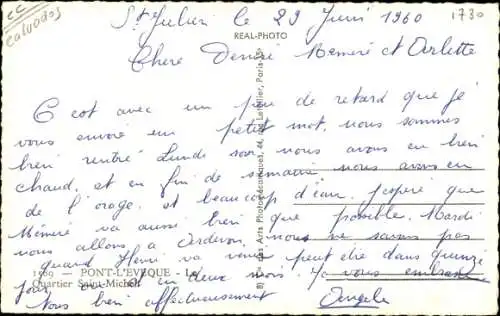 CC
Calvados
St Julien le 29 Juin 1960
1730
REAL-PHOTO
Chère Mémére et Arlette
C est avec un peu de retard que je
vous envoie un petit mot, nous sommes
bien rentré Lundi soir nous avons eu bien
chaud, et en fin de semaine nous avons eu
de l'orage, et beaucoup d'eau. J'espere que
Mémére va aussi bien que possible. Mardi
nous allons a nous ne savons pas
quand Henri va venir peut être dans quinze
1509 — PONT-L'EVEQUE
jour ou et en deux mois. Ja vous embrasse
Quartier Saint-Michel
Vous bien affectueusement Angele
Les Arts Photomécaniques, 44, Letellier, Paris-15